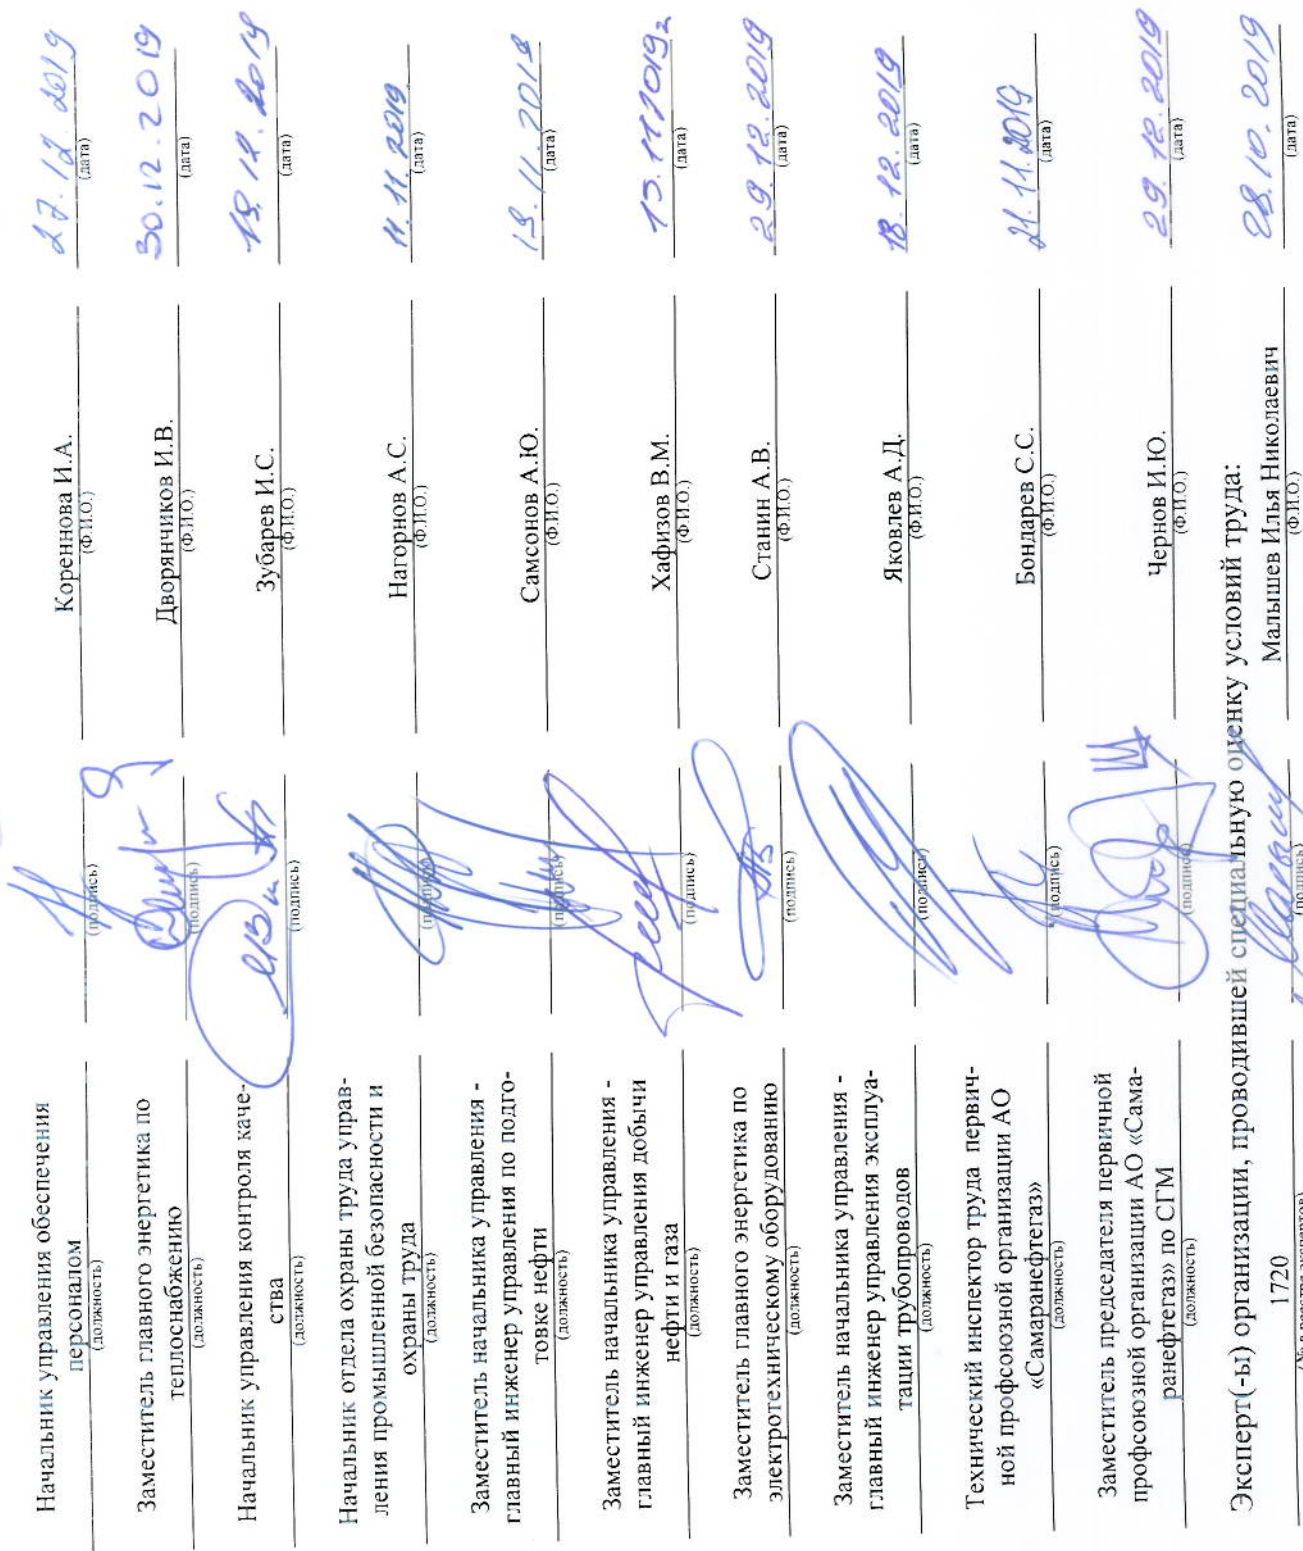 Начальник управления обеспечения
персоналом Кореннова И.А. 27.12.2019
(должность) (подпись) (Ф.И.О.) (дата)
Заместитель главного энергетика по
теплоснабжению Дворянчиков И.В. 30.12.2019
(должность) (подпись) (Ф.И.О.) (дата)
Начальник управления контроля каче-
ства Зубарев И.С.
(должность) (подпись) (Ф.И.О.) (дата)
Начальник отдела охраны труда управ-
ления промышленной безопасности и
охраны труда Нагорнов А.С. 11.11.2019
(должность) (подпись) (Ф.И.О.) (дата)
Заместитель начальника управления -
главный инженер управления по подго-
товке нефти Самсонов А.Ю.
(должность) (подпись) (Ф.И.О.) (дата)
Заместитель начальника управления -
главный инженер управления добычи
нефти и газа Хафизов В.М.
(должность) (подпись) (Ф.И.О.) (дата)
Заместитель главного энергетика по
электротехническому оборудованию Станин А.В. 29.12.2019
(должность) (подпись) (Ф.И.О.) (дата)
Заместитель начальника управления -
главный инженер управления эксплуа-
тации трубопроводов Яковлев А.Д. 18.12.2019
(должность) (подпись) (Ф.И.О.) (дата)
Технический инспектор труда первич-
ной профсоюзной организации АО
«Самаранефтегаз» Бондарев С.С. 21.11.2019
(должность) (подпись) (Ф.И.О.) (дата)
Заместитель председателя первичной
профсоюзной организации АО «Сама-
ранефтегаз» по СГМ Чернов И.Ю. 29.12.2019
(должность) (подпись) (Ф.И.О.) (дата)
Эксперт(-ы) организации, проводившей специальную оценку условий труда:
1720 Малышев Илья Николаевич 28.10.2019
(№ в реестре экспертов) (подпись) (Ф.И.О.) (дата)